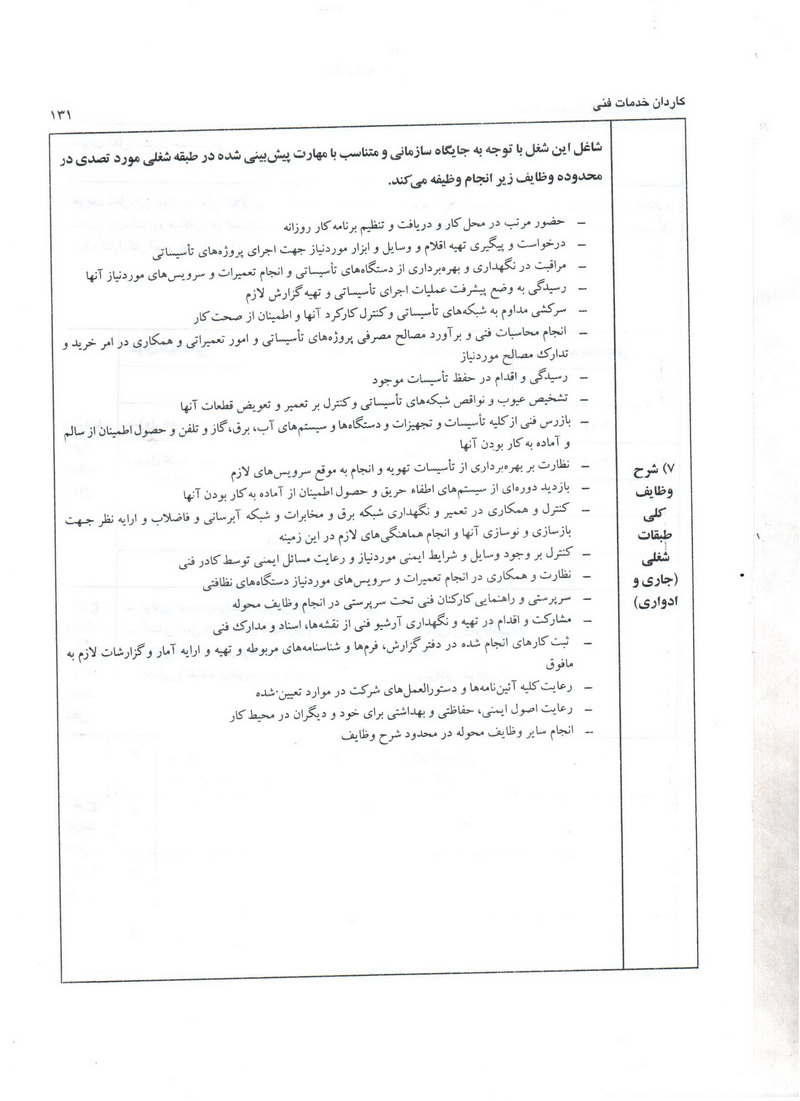 کاردان خدمات فنی
۱۳۱
شاغل این شغل با توجه به جایگاه سازمانی و متناسب با مهارت پیش‌بینی شده در طبقه شغلی مورد تصدی در
محدوده وظایف زیر انجام وظیفه می‌کند.
– حضور مرتب در محل کار و دریافت و تنظیم برنامه کار روزانه
– درخواست و پیگیری تهیه اقلام و وسایل و ابزار موردنیاز جهت اجرای پروژه‌های تأسیساتی
– مراقبت در نگهداری و بهره‌برداری از دستگاه‌های تأسیساتی و انجام تعمیرات و سرویس‌های موردنیاز آنها
– رسیدگی به وضع پیشرفت عملیات اجرای تأسیساتی و تهیه گزارش لازم
– سرکشی مداوم به شبکه‌های تأسیساتی و کنترل کارکرد آنها و اطمینان از صحت کار
– انجام محاسبات فنی و برآورد مصالح مصرفی پروژه‌های تأسیساتی و امور تعمیراتی و همکاری در امر خرید و
تدارک مصالح موردنیاز
– رسیدگی و اقدام در حفظ تأسیسات موجود
– تشخیص عیوب و نواقص شبکه‌های تأسیساتی و کنترل بر تعمیر و تعویض قطعات آنها
– بازرس فنی از کلیه تأسیسات و تجهیزات و دستگاه‌ها و سیستم‌های آب، برق، گاز و تلفن و حصول اطمینان از سالم
و آماده به کار بودن آنها
– نظارت بر بهره‌برداری از تأسیسات تهویه و انجام به موقع سرویس‌های لازم
– بازدید دوره‌ای از سیستم‌های اطفاء حریق و حصول اطمینان از آماده به کار بودن آنها
– کنترل و همکاری در تعمیر و نگهداری شبکه برق و مخابرات و شبکه آبرسانی و فاضلاب و ارایه نظر جهت
بازسازی و نوسازی آنها و انجام هماهنگی‌های لازم در این زمینه
– کنترل بر وجود وسایل و شرایط ایمنی موردنیاز و رعایت مسائل ایمنی توسط کادر فنی
– نظارت و همکاری در انجام تعمیرات و سرویس‌های موردنیاز دستگاه‌های نظافتی
– سرپرستی و راهنمایی کارکنان فنی تحت سرپرستی در انجام وظایف محوله
– مشارکت و اقدام در تهیه و نگهداری آرشیو فنی از نقشه‌ها، اسناد و مدارک فنی
– ثبت کارهای انجام شده در دفتر گزارش، فرم‌ها و شناسنامه‌های مربوطه و تهیه و ارایه آمار و گزارشات لازم به
مافوق
– رعایت کلیه آئین‌نامه‌ها و دستورالعمل‌های شرکت در موارد تعیین‌شده
– رعایت اصول ایمنی، حفاظتی و بهداشتی برای خود و دیگران در محیط کار
– انجام سایر وظایف محوله در محدود شرح وظایف
۷) شرح
وظایف
کلی
طبقات
شغلی
(جاری و
ادواری)